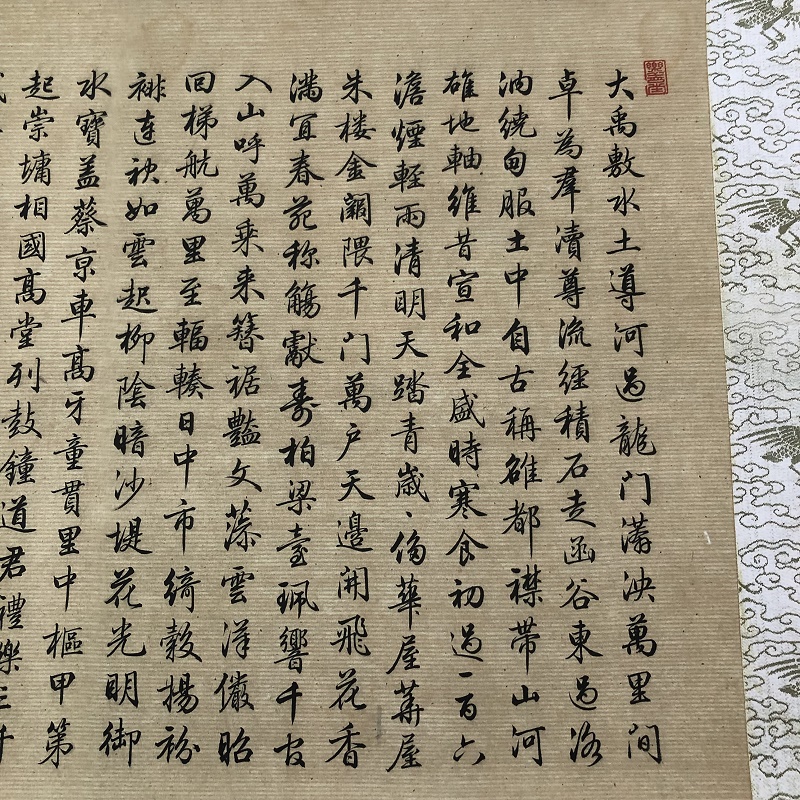 大禹敷水土導河過龍門泱萬里間
卓為羣瀆尊流經積石走函谷東過洛
汭繞甸服土中自古稱雄都襟帶山河
雄地軸維昔宣和全盛時寒食初過一百六
澹煙輕雨清明天踏青歲丶傷華屋華屋
朱樓金闕隈千門萬戶天邊開飛花香
滿宜春苑称觴獻壽柏梁臺珮響千官
入山呼萬乘来簪裾豔文藻雲漢儼昭
回梯航萬里至輻輳日中市綺縠揚衯
裶連袂如雲起柳陰暗沙堤花光明御
水寶蓋蔡京車高牙童貫里中樞甲第
起崇墉相國高堂列鼓鐘道君禮樂三千